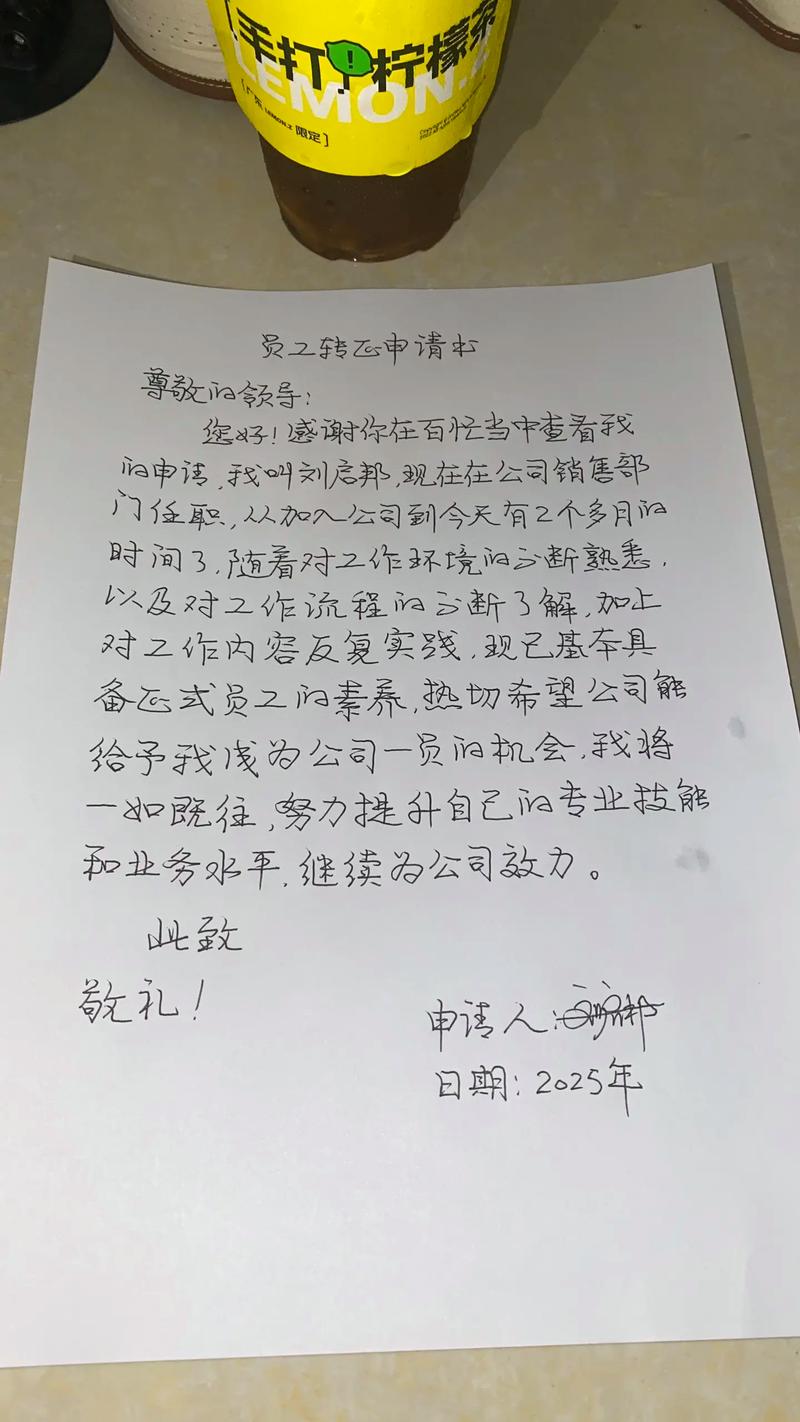 手打柠檬茶
LEMON.
[广东 LEMON.Z 限定]
员工转正申请书
尊敬的领导:
您好!感谢你在百忙当中查看我
的申请,我叫刘启邦,现在在公司销售部
门任职,从加入公司到今天有2个多月的
时间了,随着对工作环境的不断熟悉,
以及对工作流程的不断了解,加上
对工作内容反复实践,现已基本具
备正式员工的素养,热切希望公司能
给予我成为公司一员的机会,我将
一如既往,努力提升自己的专业技能
和业务水平,继续为公司效力。
此致
敬礼!
申请人:刘启邦
日期:2025年